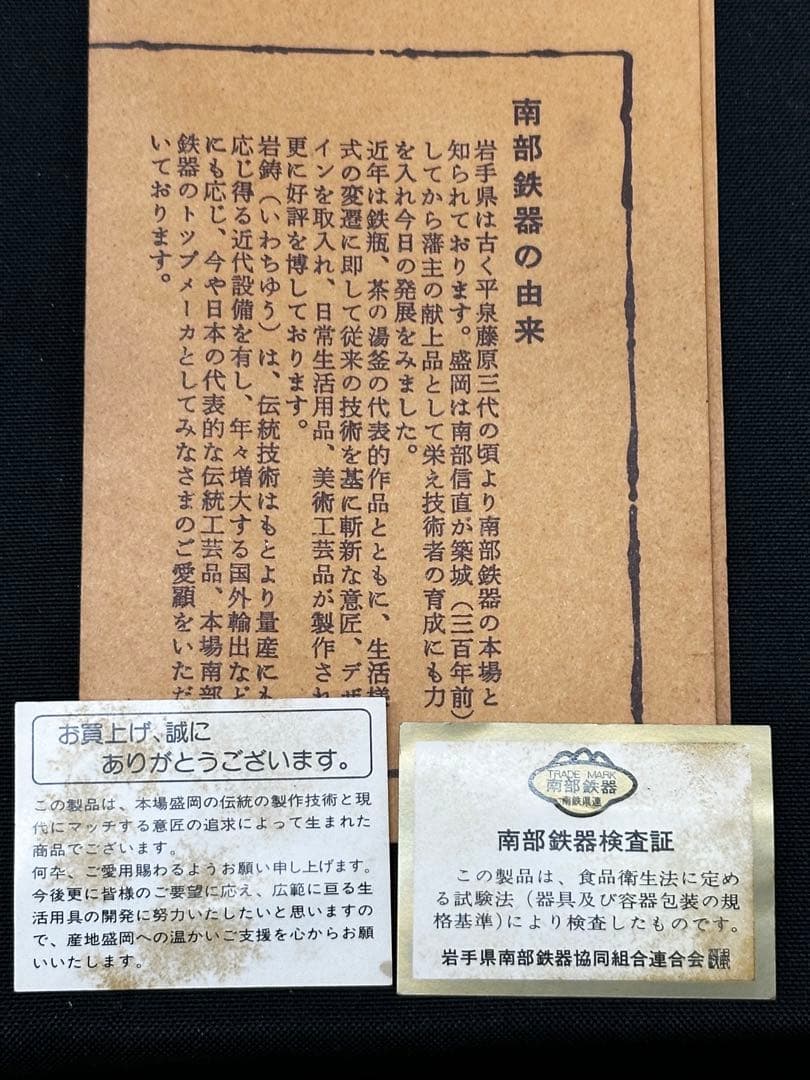 南部鉄器の由来
岩手県は古く平泉藤原三代の頃より南部鉄器の本場と
知られております。盛岡は南部信直が築城(三百年前)
してから藩主の献上品として栄え技術者の育成にも力
を入れ今日の発展をみました。
近年は鉄瓶、茶の湯釜の代表的作品とともに、生活様
式の変遷に即して従来の技術を基に斬新な意匠、デザ
インを取入れ、日常生活用品、美術工芸品が製作され
更に好評を博しております。
岩鋳(いわちゆう)は、伝統技術はもとより量産にも
応じ得る近代設備を有し、年々増大する国外輸出など
にも応じ、今や日本の代表的な伝統工芸品、本場南部
鉄器のトップメーカとしてみなさまのご愛顧をいただ
いております。
お買上げ、誠に
ありがとうございます。
この製品は、本場盛岡の伝統の製作技術と現
代にマッチする意匠の追求によって生まれた
商品でございます。
何卒、ご愛用賜わるようお願い申し上げます。
今後更に皆様のご要望に応え、広範に亘る生
活用具の開発に努力いたしたいと思いますの
で、産地盛岡への温かいご支援を心からお願
いいたします。
TRADE MARK
南部鉄器
南鉄県連
南部鉄器検査証
この製品は、食品衛生法に定め
る試験法(器具及び容器包装の規
格基準)により検査したものです。
岩手県南部鉄器協同組合連合会